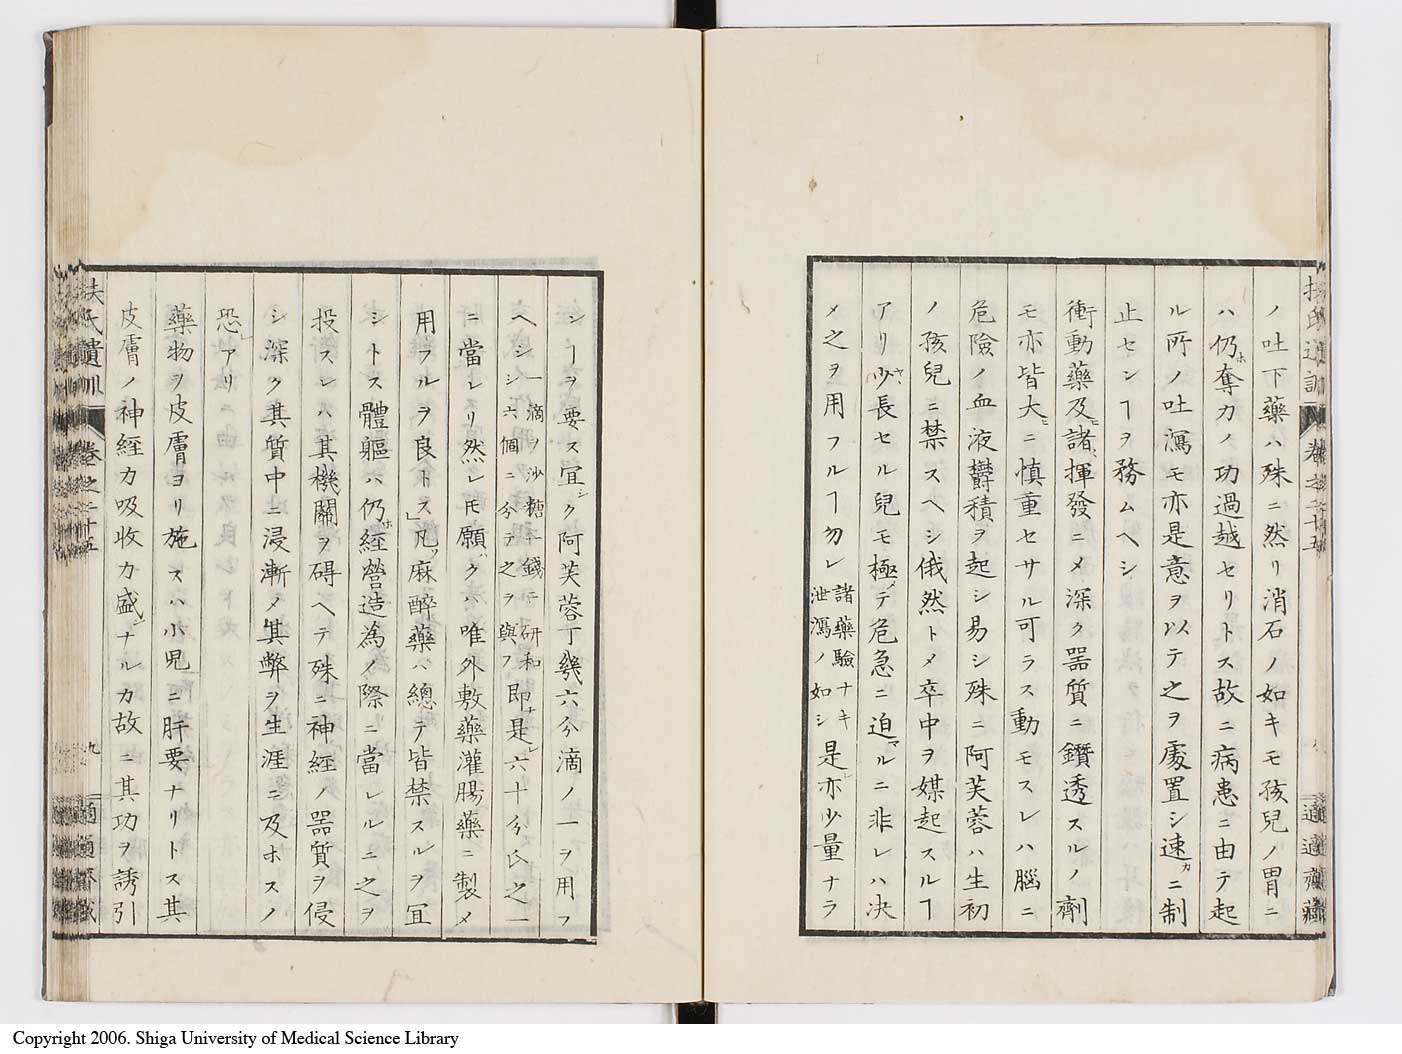 ノ吐下藥ハ殊ニ然リ消石ノ如キモ孩兒ノ胃ニ
ハ仍ホ奪力ノ功過越セリトス故ニ病患ニ由テ起
ル所ノ吐瀉モ亦是意ヲ以テ之ヲ處置シ速カニ制
止センヿヲ務ムヘシ
衝動藥及ヒ諸揮發ニメ深ク器質ニ鑽透スルノ劑
モ亦皆大ニ慎重セサル可ラス動モスレハ腦ニ
危險ノ血液欝積ヲ起シ易シ殊ニ阿芙蓉ハ生初
ノ孩兒ニ禁スヘシ俄然トメ卒中ヲ媒起スルヿ
アリ少長セル兒モ極メテ危急ニ迫マルニ非レハ决
メ之ヲ用フルヿ勿レ諸藥驗ナキ泄瀉ノ如シ是レ亦少量ナラ
扶氏遺訓 卷之二十五 適適齋藏
シヿヲ要ス宜シク阿芙蓉丁幾六分滴ノ一ヲ用フ
ヘシ一滴ヲ沙糖一錢ニ研和六個ニ分テ之ヲ與フ即チ是レ六十分氏之一
ニ當レリ然レモ願クハ唯外敷藥灌腸藥ニ製メ
用フルヲ良トス」凡ソ麻醉藥ハ總テ皆禁スルヲ宜
シトス體軀ハ仍ホ經營造為ノ際ニ當レルニ之ヲ
投スレハ其機關ヲ碍ヘテ殊ニ神經ノ器質ヲ侵
シ深ク其質中ニ浸漸メ其弊ヲ生涯ニ及ホスノ
恐レアリ
藥物ヲ皮膚ヨリ施スハ小兒ニ肝要ナリトス其
皮膚ノ神經力吸收力盛ナルカ故ニ其功ヲ誘引
扶氏遺訓 卷之二十五 九 適適齋藏
Copyright 2006. Shiga University of Medical Science Library